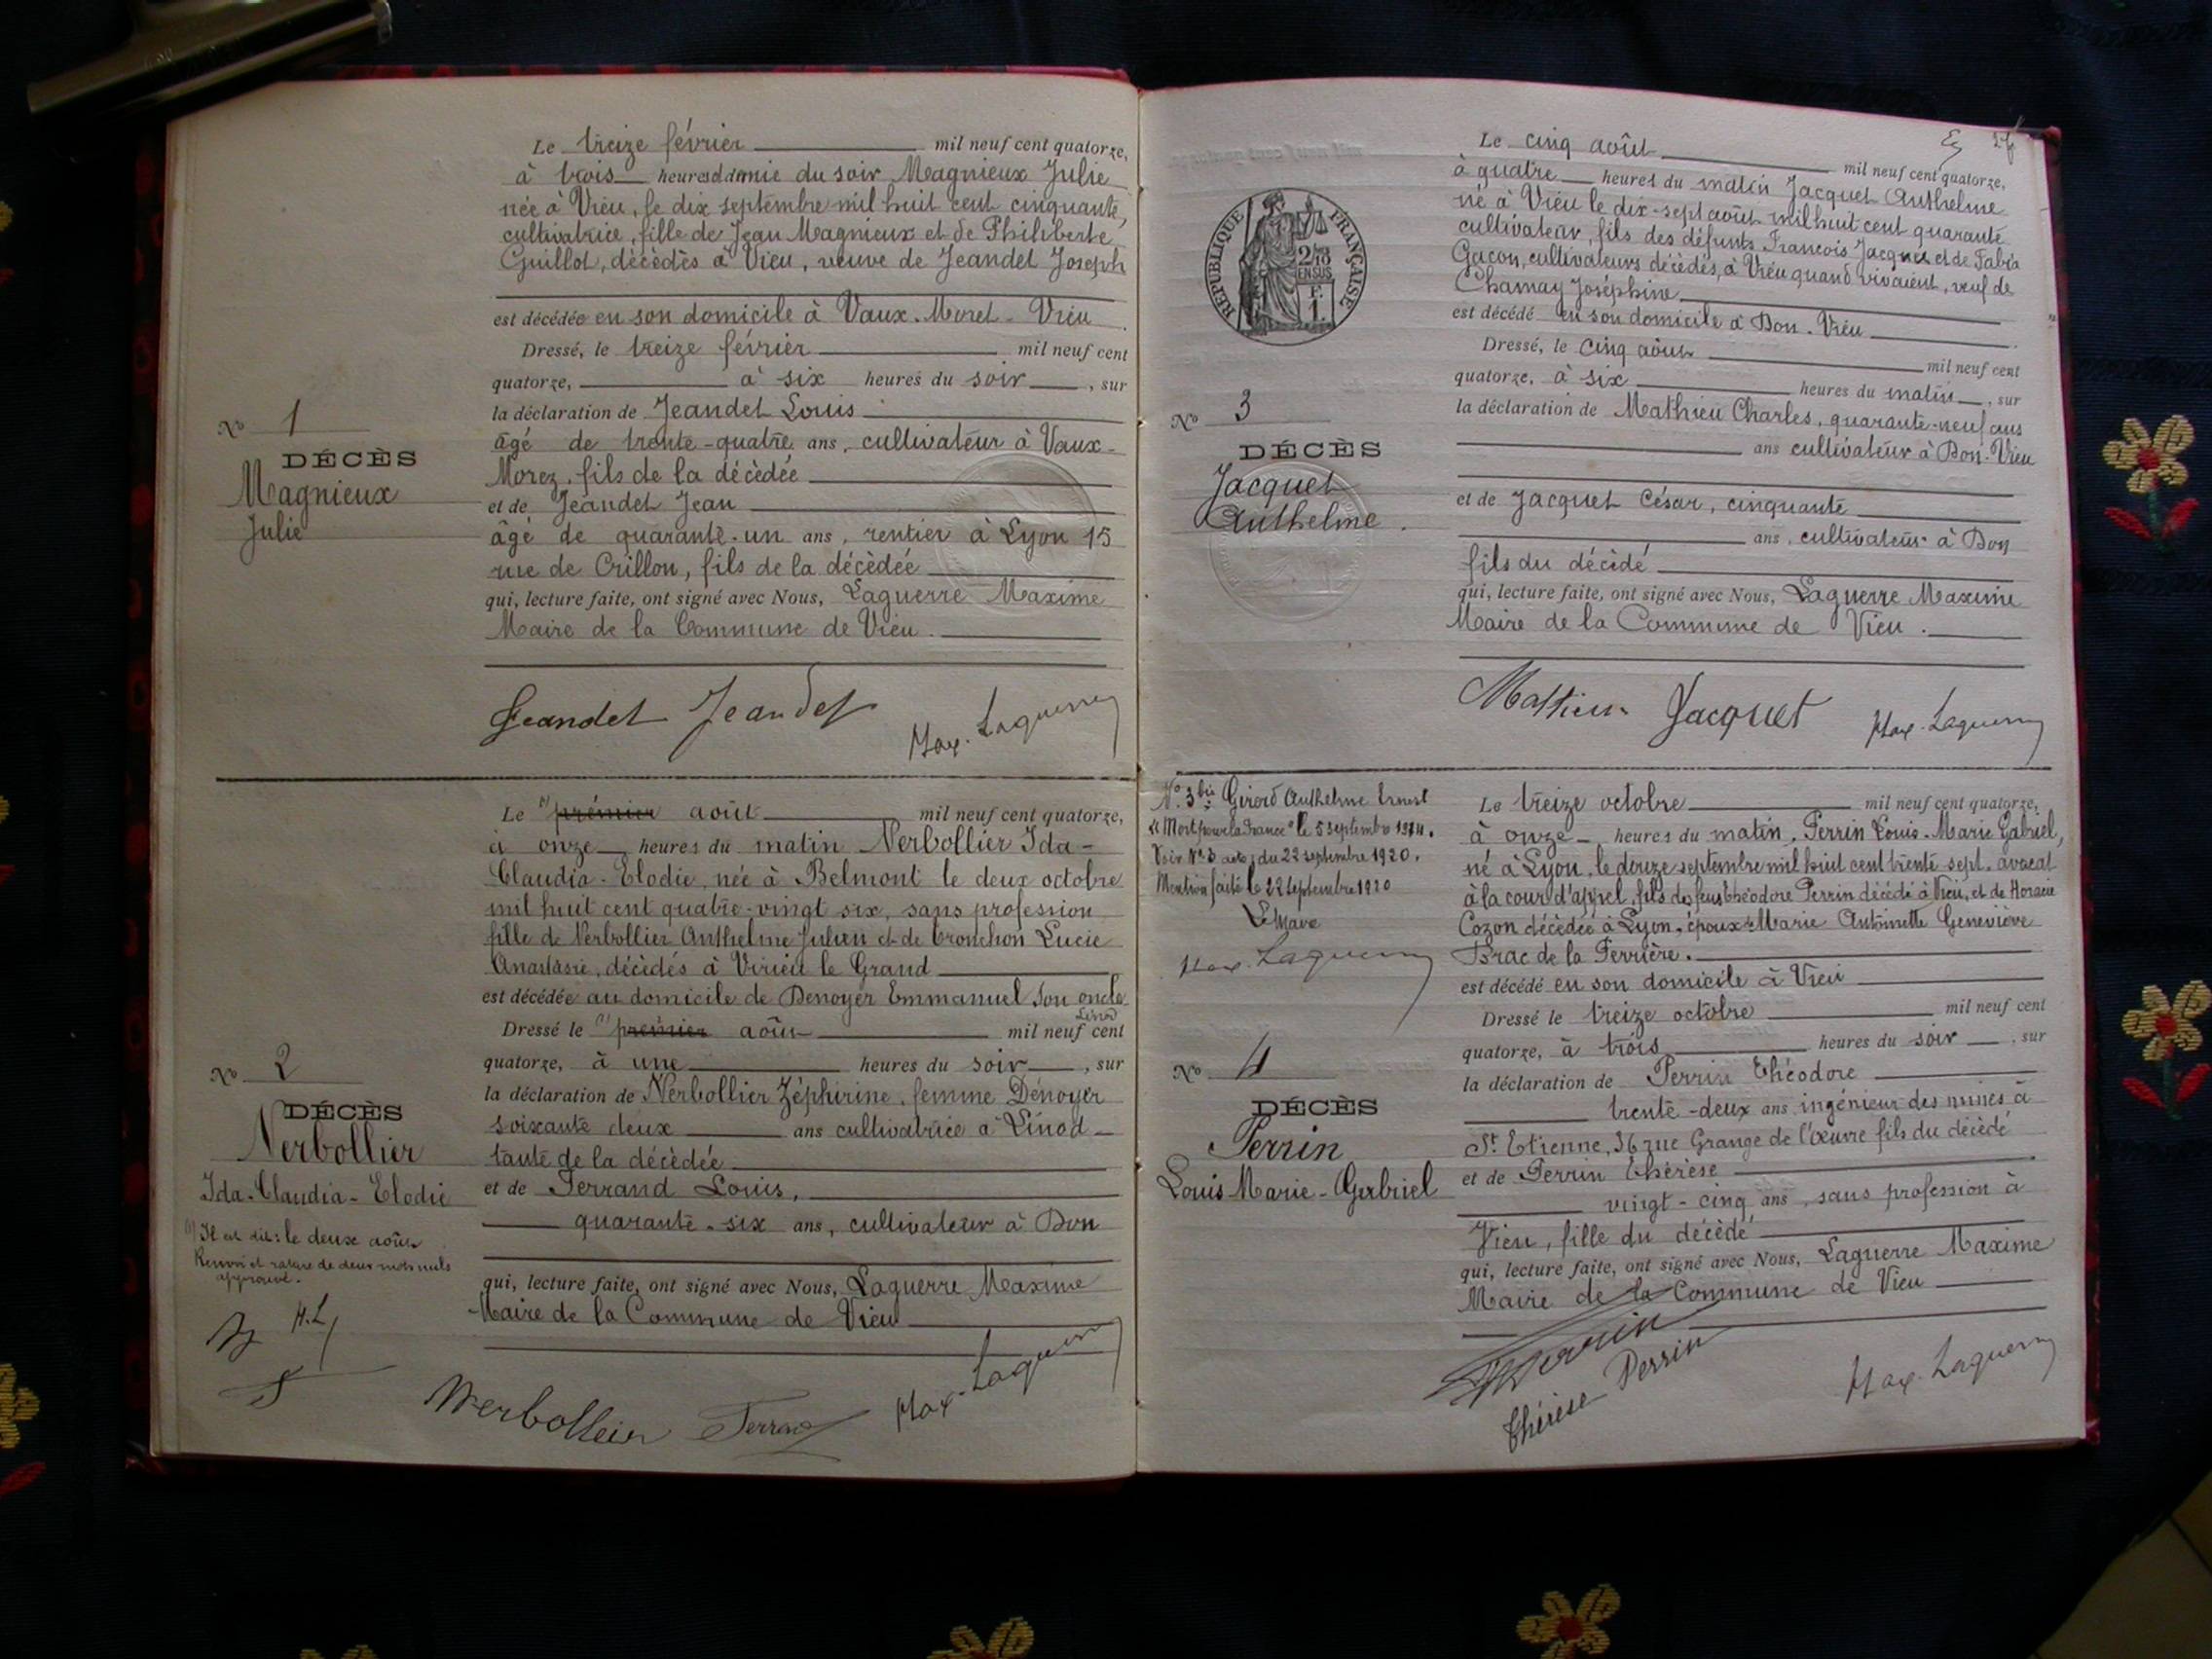 Le treize février mil neuf cent quatorze,
à trois heures et demie du soir Magnieux Julie
née à Vieu, le dix septembre mil huit cent cinquante,
cultivatrice, fille de Jean Magnieux et de Philiberte
Guillot, décédés à Vieu, veuve de Jeandet Joseph
est décédée en son domicile à Vaux-Moret-Vieu
Dressé, le treize février mil neuf cent
quatorze, à six heures du soir, sur
la déclaration de Jeandet Louis
âgé de trente-quatre ans, cultivateur à Vaux-
Morez, fils de la décédée
et de Jeandet Jean
âgé de quarante-un ans, rentier à Lyon 15
rue de Crillon, fils de la décédée
qui, lecture faite, ont signé avec Nous, Laguerre Maxime
Maire de la Commune de Vieu.
No 1
DÉCÈS
Magnieux
Julie
Jeandet Jeandet Max. Laguerre
Le (1) premier août mil neuf cent quatorze,
à onze heures du matin Nerbollier Ida-
Claudia-Elodie, née à Belmont le deux octobre
mil huit cent quatre-vingt six, sans profession
fille de Nerbollier Anthelme Julien et de Tronchon Lucie
Anastasie, décédés à Virieu le Grand
est décédée au domicile de Denoyer Emmanuel son oncle
Linod
Dressé le (1) premier août mil neuf cent
quatorze, à une heures du soir, sur
la déclaration de Nerbollier Zéphirine, femme Dénoyer
soixante deux ans cultivatrice à Linod
tante de la décédée
et de Ferrand Louis,
quarante-six ans, cultivateur à Don
qui, lecture faite, ont signé avec Nous, Laguerre Maxime
Maire de la Commune de Vieu
No 2
DÉCÈS
Nerbollier
Ida-Claudia-Elodie
(1) Il est dit: le deux août
Renvoi et rature de deux mots nuls
approuvé.
M.L
Nerbollier Ferrand Max. Laguerre
RÉPUBLIQUE FRANÇAISE
2/10
EN SUS
F.
1.
Le cinq août mil neuf cent quatorze,
à quatre heures du matin Jacquet Anthelme
né à Vieu le dix-sept août mil huit cent quarante
cultivateur, fils des défunts François Jacquet et de Fabia
Gacon, cultivateurs décédés, à Vieu quand vivaient, veuf de
Chamay Joséphine
est décédé en son domicile à Don-Vieu
Dressé, le cinq août mil neuf cent
quatorze, à six heures du matin, sur
la déclaration de Mathieu Charles, quarante-neuf ans
ans cultivateur à Don-Vieu
et de Jacquet César, cinquante
ans, cultivateur à Don
fils du décédé
qui, lecture faite, ont signé avec Nous, Laguerre Maxime
Maire de la Commune de Vieu.
No 3
DÉCÈS
Jacquet
Anthelme.
Mathieu Jacquet Max. Laguerre
No. 3 bis Girord Anthelme Ernest
"Mort pour la France" le 5 septembre 1914.
Voir No 8 acte du 22 septembre 1920.
Mention faite le 22 septembre 1920
Le Maire
Max. Laguerre
Le treize octobre mil neuf cent quatorze,
à onze heures du matin, Perrin Louis-Marie Gabriel,
né à Lyon, le douze septembre mil huit cent trente sept, avocat
à la cour d'appel, fils des feus Théodore Perrin décédé à Vieu, et de Horacie
Cozon décédée à Lyon, époux de Marie Antoinette Geneviève
Brac de la Perrière.
est décédé en son domicile à Vieu
Dressé le treize octobre mil neuf cent
quatorze, à trois heures du soir, sur
la déclaration de Perrin Théodore
trente-deux ans ingénieur des mines à
St. Etienne, 36 rue Grange de l'Œuvre fils du décédé
et de Perrin Thérèse
vingt-cinq ans, sans profession à
Vieu, fille du décédé
qui, lecture faite, ont signé avec Nous, Laguerre Maxime
Maire de la Commune de Vieu
No 4
DÉCÈS
Perrin
Louis Marie-Gabriel
Perrin
Thérèse Perrin Max. Laguerre